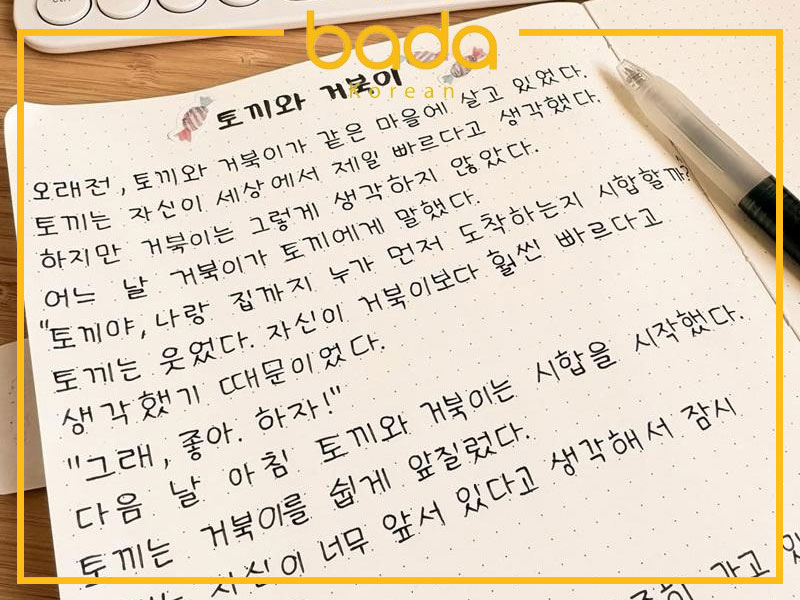 bada
Korean
토끼와 거북이
오래전, 토끼와 거북이가 같은 마을에 살고 있었다.
토끼는 자신이 세상에서 제일 빠르다고 생각했다.
하지만 거북이는 그렇게 생각하지 않았다.
어느 날 거북이가 토끼에게 말했다.
"토끼야, 나랑 집까지 누가 먼저 도착하는지 시합할까?
토끼는 웃었다. 자신이 거북이보다 훨씬 빠르다고
생각했기 때문이었다.
"그래, 좋아. 하자!"
다음 날 아침 토끼와 거북이는 시합을 시작했다.
토끼는 거북이를 쉽게 앞질렀다.
자신이 너무 앞서 있다고 생각해서 잠시
가고